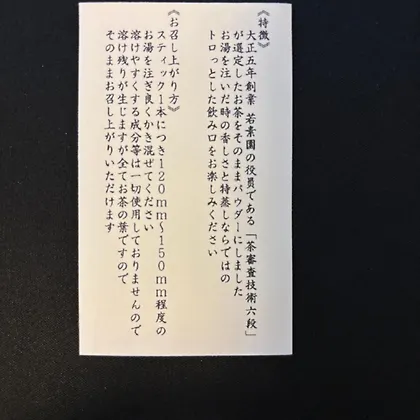 《特徴》
大正五年創業 若素園の役員である「茶審査技術六段」
が選定したお茶をそのままパウダーにしました
お湯を注いだ時の香しさと特蒸しならではの
トロっとした飲み口をお楽しみください
《お召し上がり方》
スティック1本につき120mm~150mm程度の
お湯を注ぎ良くかき混ぜてください
溶けやすくする成分等は一切使用しておりませんので
溶け残りが生じますが全てお茶の葉ですので
そのままお召し上がりいただけます